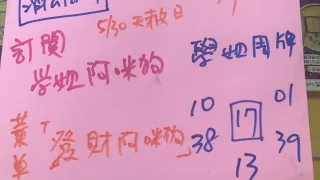 5/30天赦日
訂閱
學妞阿咪狗
學妞周牌
葉「發財阿咪狗」
單
10 01
17
38 39
13